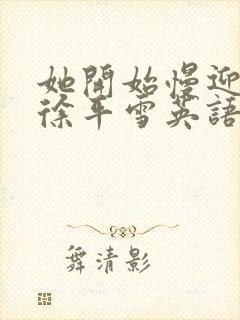 她開始慢迎
徐平雪英語
舞清影